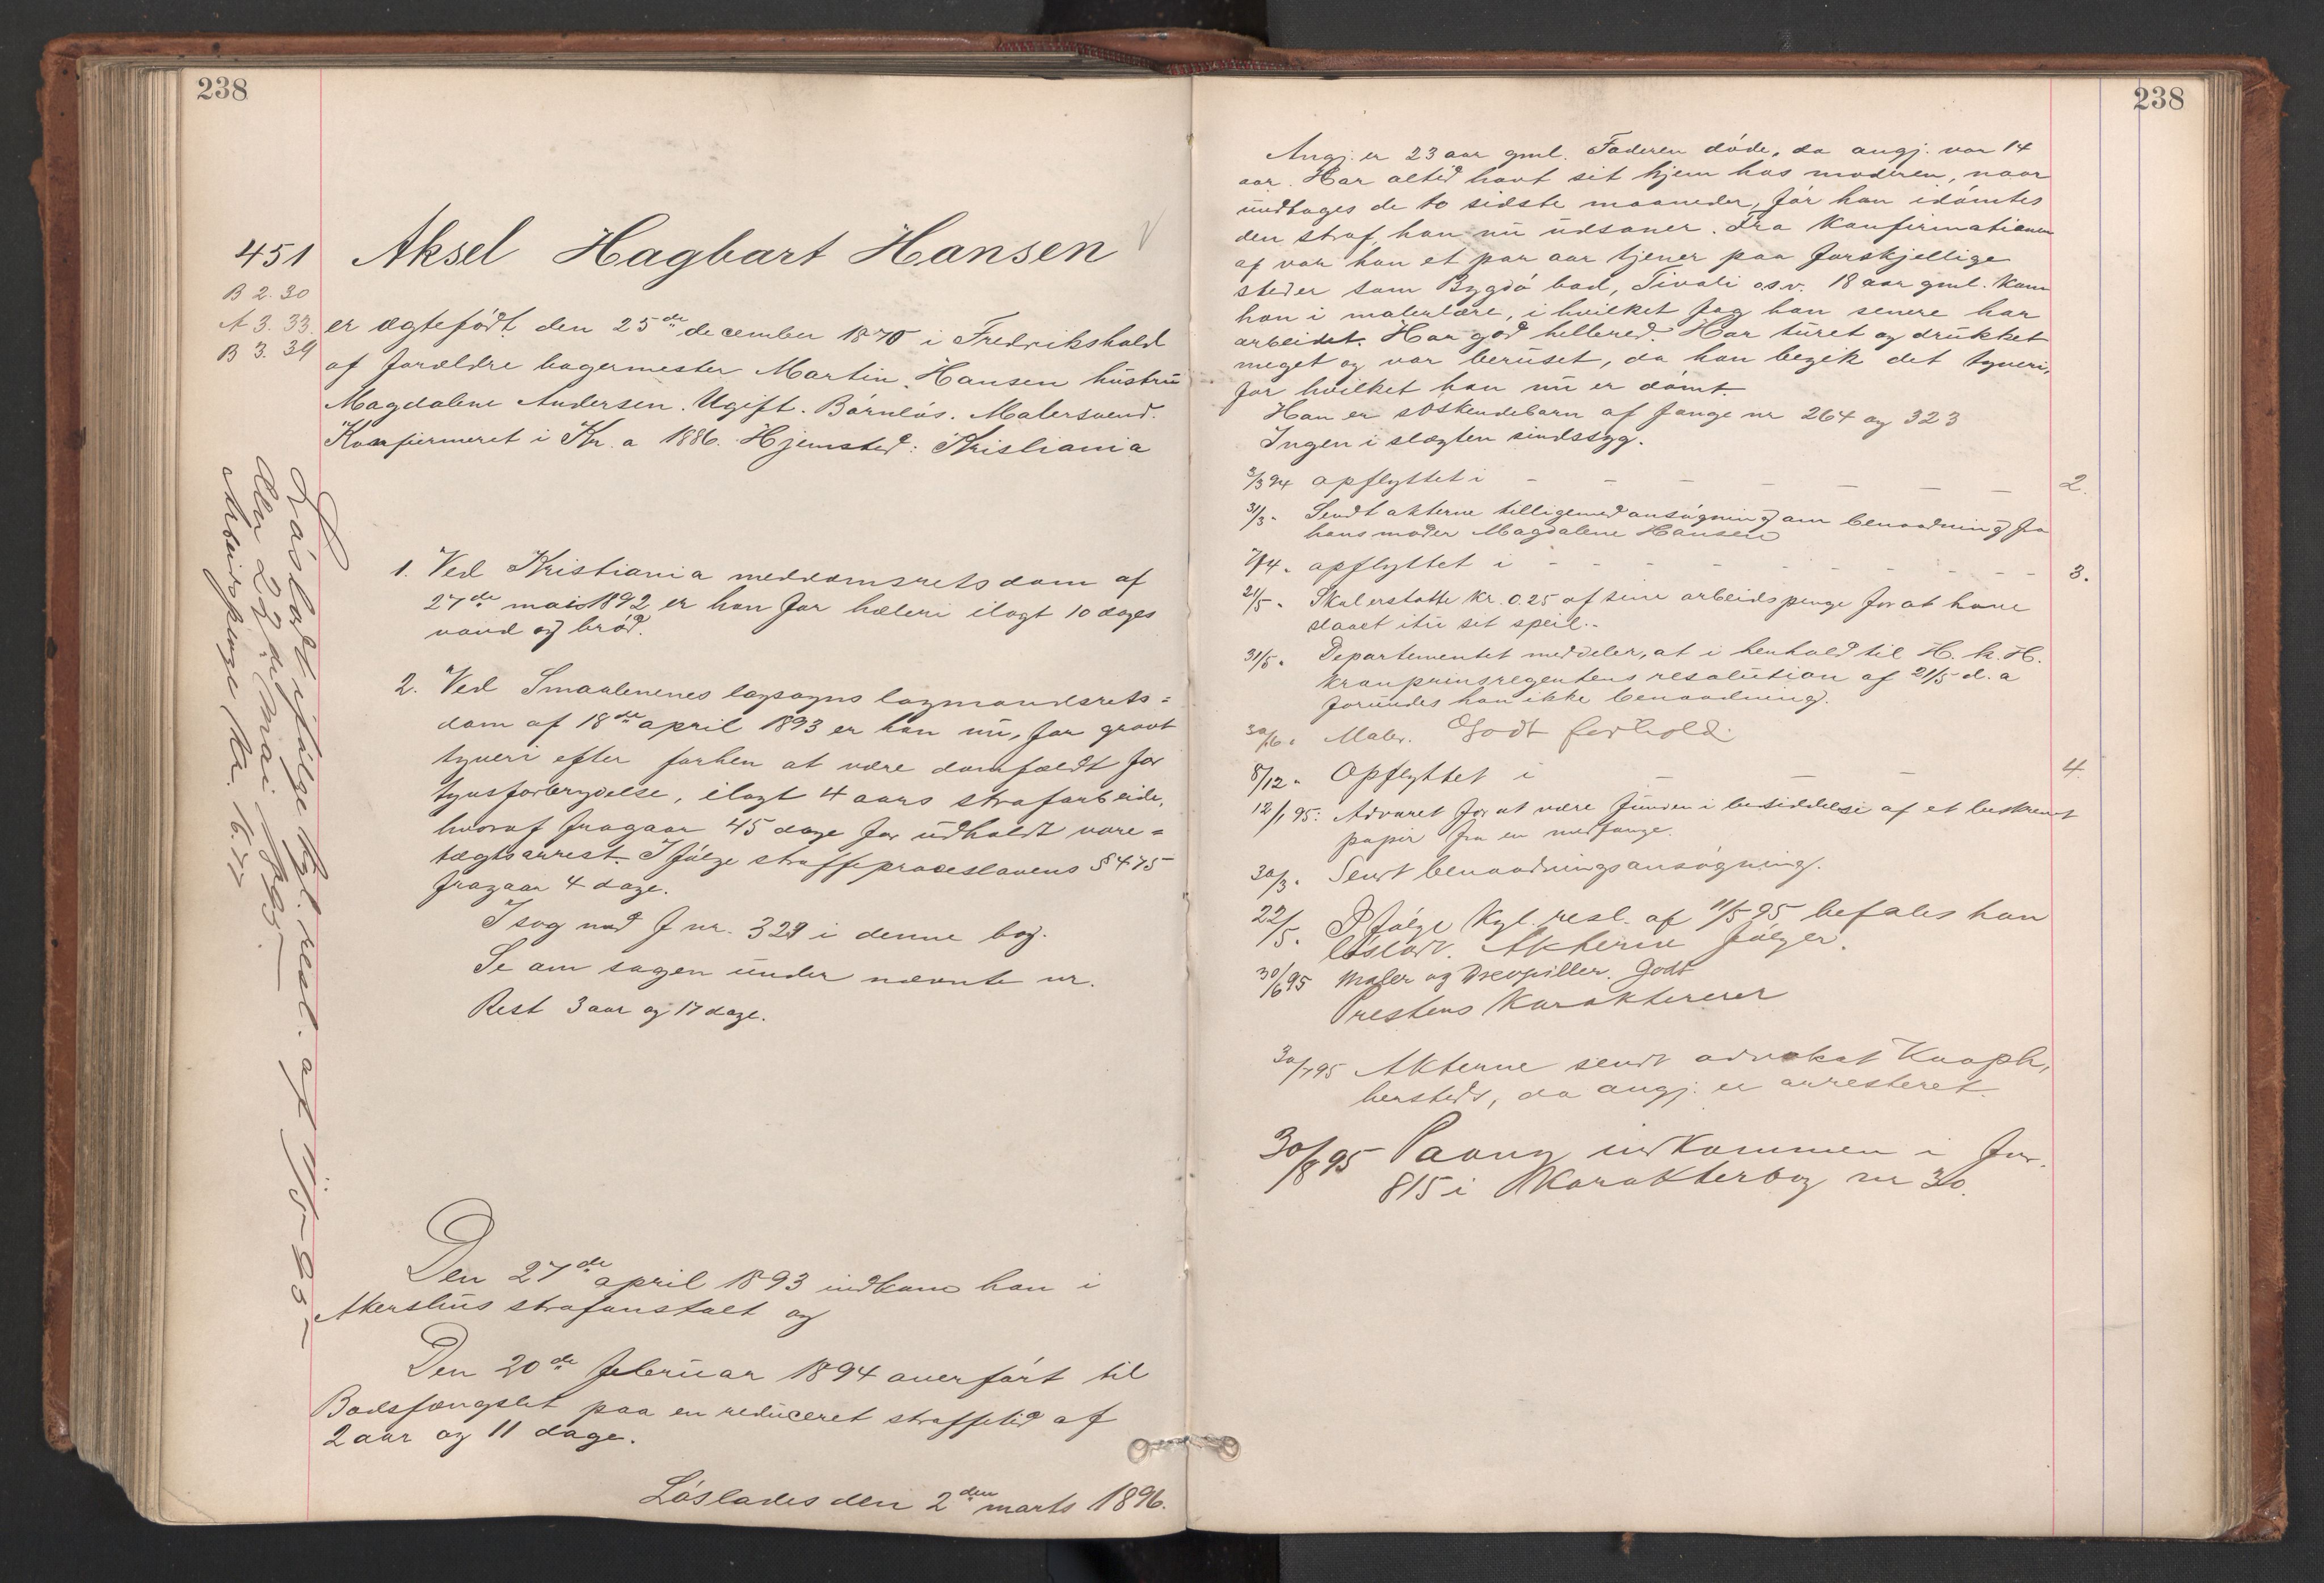 238
451 Aksel Hagbart Hansen
B 2. 30
A 3. 33.
B 3. 39
er ægtefödt den 25de december 1870 i Fredrikshald
af forældre bagermester Martin Hansen hustru
Magdalene Andersen. Ugift. Börnlös. Malersvend.
Konfirmeret i Kr.a 1886. Hjemsted: Kristiania
Lösladt ifölge kgl. resl. af 11/5-95
den 22de mai 1895
Arbeidspenge Kr.
1. Ved Kristiania meddomsrets dom af
27de mai 1892 er han for hæleri ilagt 10 dages
vand og bröd.
2. Ved Smaalenenes lagsogns lagmandsrets=
dom af 18de april 1893 er han nu, for grovt
tyveri efter forhen at være domfældt for
tyvsforbrydelse, ilagt 4 aars strafarbeide,
hvoraf fragaar 45 dage for udholdt vare=
tægtsarrest. Ifölge straffeproceslovens § 475
fragaar 4 dage.
I sag med f nr. 323 i denne bog.
Se om sagen under nævnte nr.
Rest 3 aar og 17 dage.
Den 27de april 1893 indkom han i
Akershus strafanstalt og
Den 20de februar 1894 overfört til
Bodsfængslet paa en reduceret straffetid af
2 aar og 11 dage.
Löslades den 2den marts 1896.
238
Angj. er 23 aar gml. Faderen döde, da angj. var 14
aar. Har altid havt sit hjem hos moderen, naar
undtages de to sidste maaneder, för han idömtes
den straf, han nu udsoner. Fra konfirmationen
af var han et par aar tjener paa forskjellige
steder som Bygdö bad, Tivoli osv. 18 aar gml. kom
han i malerlære, i hvilket fag han senere har
arbeidet. Har god helbred. Har turet og drukket
meget og var beruset, da han begik det tyveri,
for hvilket han nu er dömt.
Han er söskendebarn af fange nr 264 og 323
Ingen i slægten sindssyg.
2/3 94 opflyttet i - - - - - - 2.
31/3 " Sendt akterne tilligemed ansögning om benaadning fra
hans moder Magdalene Hansen
" opflyttet i - - - - - - 3.
21/5 " Skal erstatte kr. 0.25 af sine arbeidspenge for at have
slaaet itu sit speil.
31/5 " Departementet meddeler, at i henhold til H. k. H.
kronprinsregentens resolution af 21/5 d. a
forundes han ikke benaadning.
30/6 " Maler. Godt forhold.
8/12 " Opflyttet i - - - 4.
12/1 95: Advaret for at være funden i besiddelse af et beskrevet
papir fra en medfange.
30/3 " Sendt benaadningsansögning.
22/5 " Ifölge Kgl. resl. af 11/5 95 befales han
lösladt. Akterne fölger.
30/6 95 Maler og Dreopiller. Godt
Prestens Karakterer
30/7 95 Akterne sendt advokat
hersteds, da angj. er arresteret.
30/8 95 Paany indkommen i Fnr.
815 i Karakterbog nr 30.